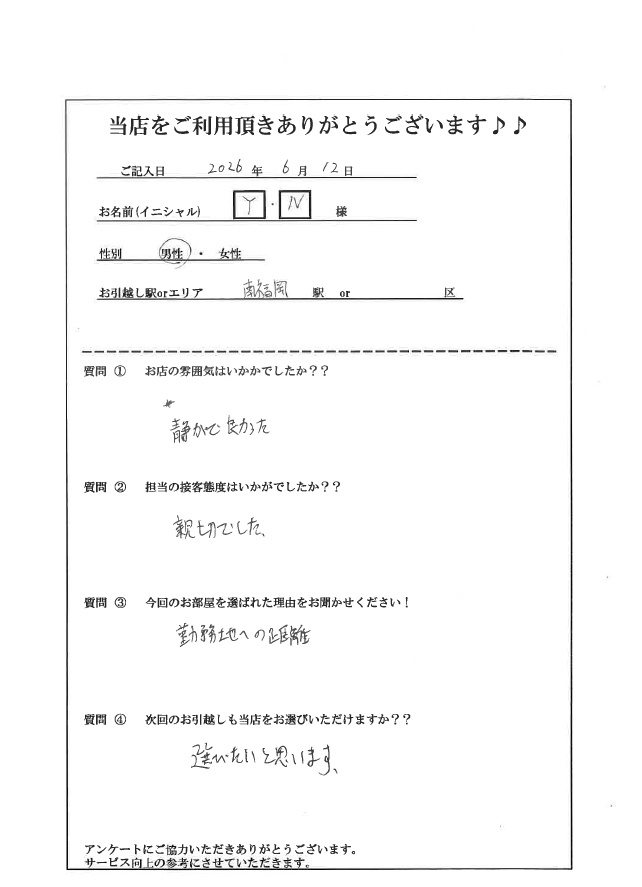 当店をご利用頂きありがとうございます♪♪
ご記入日 2026 年 6 月 12 日
お名前(イニシャル) Y ・ N 様
性別 男性 ・ 女性
お引越し駅orエリア 南福岡 駅 or 区
質問 ① お店の雰囲気はいかかでしたか??
静かで良かった
質問 ② 担当の接客態度はいかがでしたか??
親切でした、
質問 ③ 今回のお部屋を選ばれた理由をお聞かせください!
勤務地への距離
質問 ④ 次回のお引越しも当店をお選びいただけますか??
選びたいと思います、
アンケートにご協力いただきありがとうございます。
サービス向上の参考にさせていただきます。